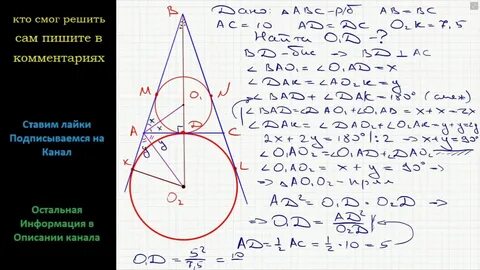 кто смог решить
сам пишите в
комментариях
Ставим лайки
Подписываемся на
Канал
Остальная
Информация в
Описании канала
B
M
N
O₁
A
D
C
x
x
y
y
K
L
O₂
Дано: △ABC - р/б AB = BC
AC = 10 AD = DC O₂K = 7,5
Найти O₁D - ?
BD - бис ⇒ BD ⊥ AC
∠BAO₁ = ∠O₁AD = x
∠DAK = ∠AO₂K = y
∠BAD + ∠DAK = 180° (смеж)
∠BAD = ∠DAO₁ + ∠O₁AD = x + x = 2x
∠DAK = ∠DAO₂ + ∠O₂AK = y + y = 2y
2x + 2y = 180° |:2 ⇒ x + y = 90°
∠O₁AO₂ = ∠O₁AD + ∠DAO₂
∠O₁AO₂ = x + y = 90° ⇒
⇒ △AO₁O₂ - прям
AD² = O₁D · O₂D
⇒ O₁D = AD²/O₂D
AD = ½ AC = ½ · 10 = 5
O₁D = 5²/7,5 = 10